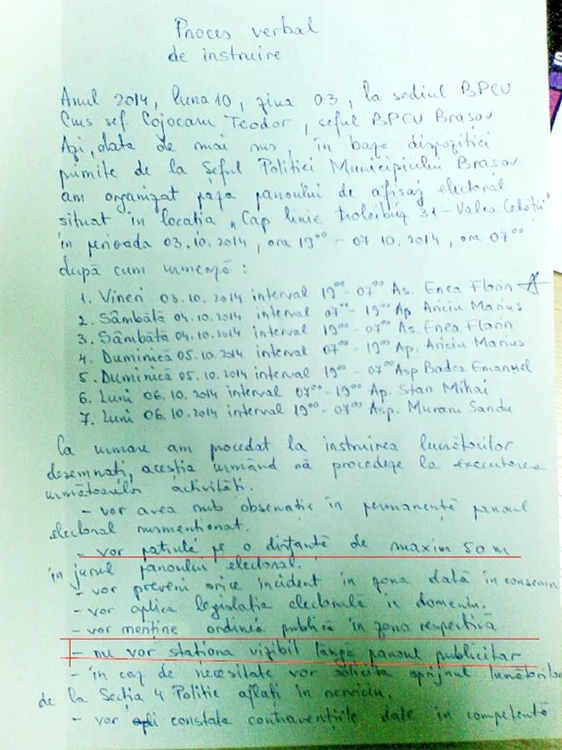 Proces verbal
de instruire
Anul 2014, luna 10, ziua 03, la sediul BPCU
Cms șef Cojocaru Teodor, șeful BPCU Brasov
Azi, data de mai sus, în baza dispoziției
primite de la Șeful Politiei Municipiului Brasov
am organizat paza panoului de afisaj electoral
situat în locatia „Cap linie troleibuz 31 - Valea Cetății"
în perioada 03.10.2014, ora 19⁰⁰ - 07.10.2014, ora 07⁰⁰
după cum urmează:
1. Vineri 03.10.2014 interval 19⁰⁰ - 07⁰⁰ As. Enea Florin
2. Sâmbătă 04.10.2014 interval 07⁰⁰ - 19⁰⁰ Ap Ariciu Marius
3. Sâmbătă 04.10.2014 interval 19⁰⁰ - 07⁰⁰ As. Enea Florin
4. Duminică 05.10.2014 interval 07⁰⁰ - 19⁰⁰ Ap. Ariciu Marius
5. Duminică 05.10.2014 interval 19⁰⁰ - 07⁰⁰ Asp Badea Emanuel
6. Luni 06.10.2014 interval 07⁰⁰ - 19⁰⁰ Ap. Stan Mihai
7. Luni 06.10.2014 interval 19⁰⁰ - 07⁰⁰ Asp. Muranu Sandu
Ca urmare am procedat la instruirea lucrătorilor
desemnați, aceștia urmând să procedeze la executarea
următoarelor activități.
- vor avea sub observatie în permanentă panoul
electoral susmentionat.
- vor patrula pe o distanță de maxim 50 m
în jurul panoului electoral.
- vor preveni orice incident în zona dată în consemn
- vor aplica legislația electorală în domeniu.
- vor mentine ordinea publică în zona respectivă
- nu vor stationa vizibil lângă panoul publicitar
- în caz de necesitate vor solicita sprijinul lucrătorilor
de la Sectia 4 Politie aflați în serviciu.
- vor constata contravențiile date în competentă